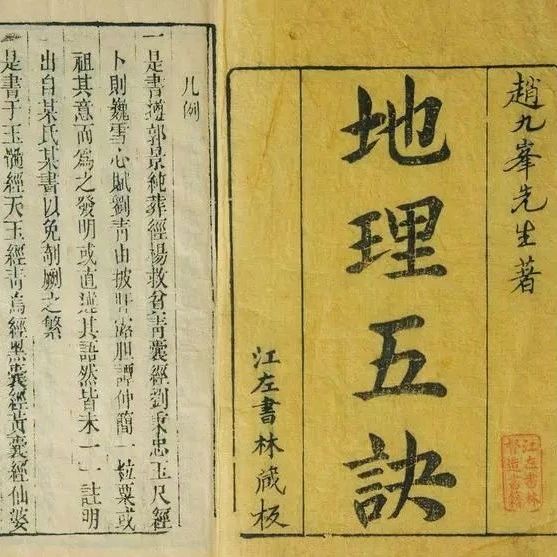 趙九峯先生著
地理五訣
江左書林藏板
江左書林
督造書籍
凡例
一是書遵郭景純葬經楊救貧青囊經劉秉忠玉尺經
卜則巍雪心賦劉青田披肝露胆譚仲簡一粒粟或
祖其意而為之發明或直述其語然皆未一一註明
出自某氏某書以免剞劂之繁
是書于玉髓經天玉經青烏經黑囊經黃囊經仙婆